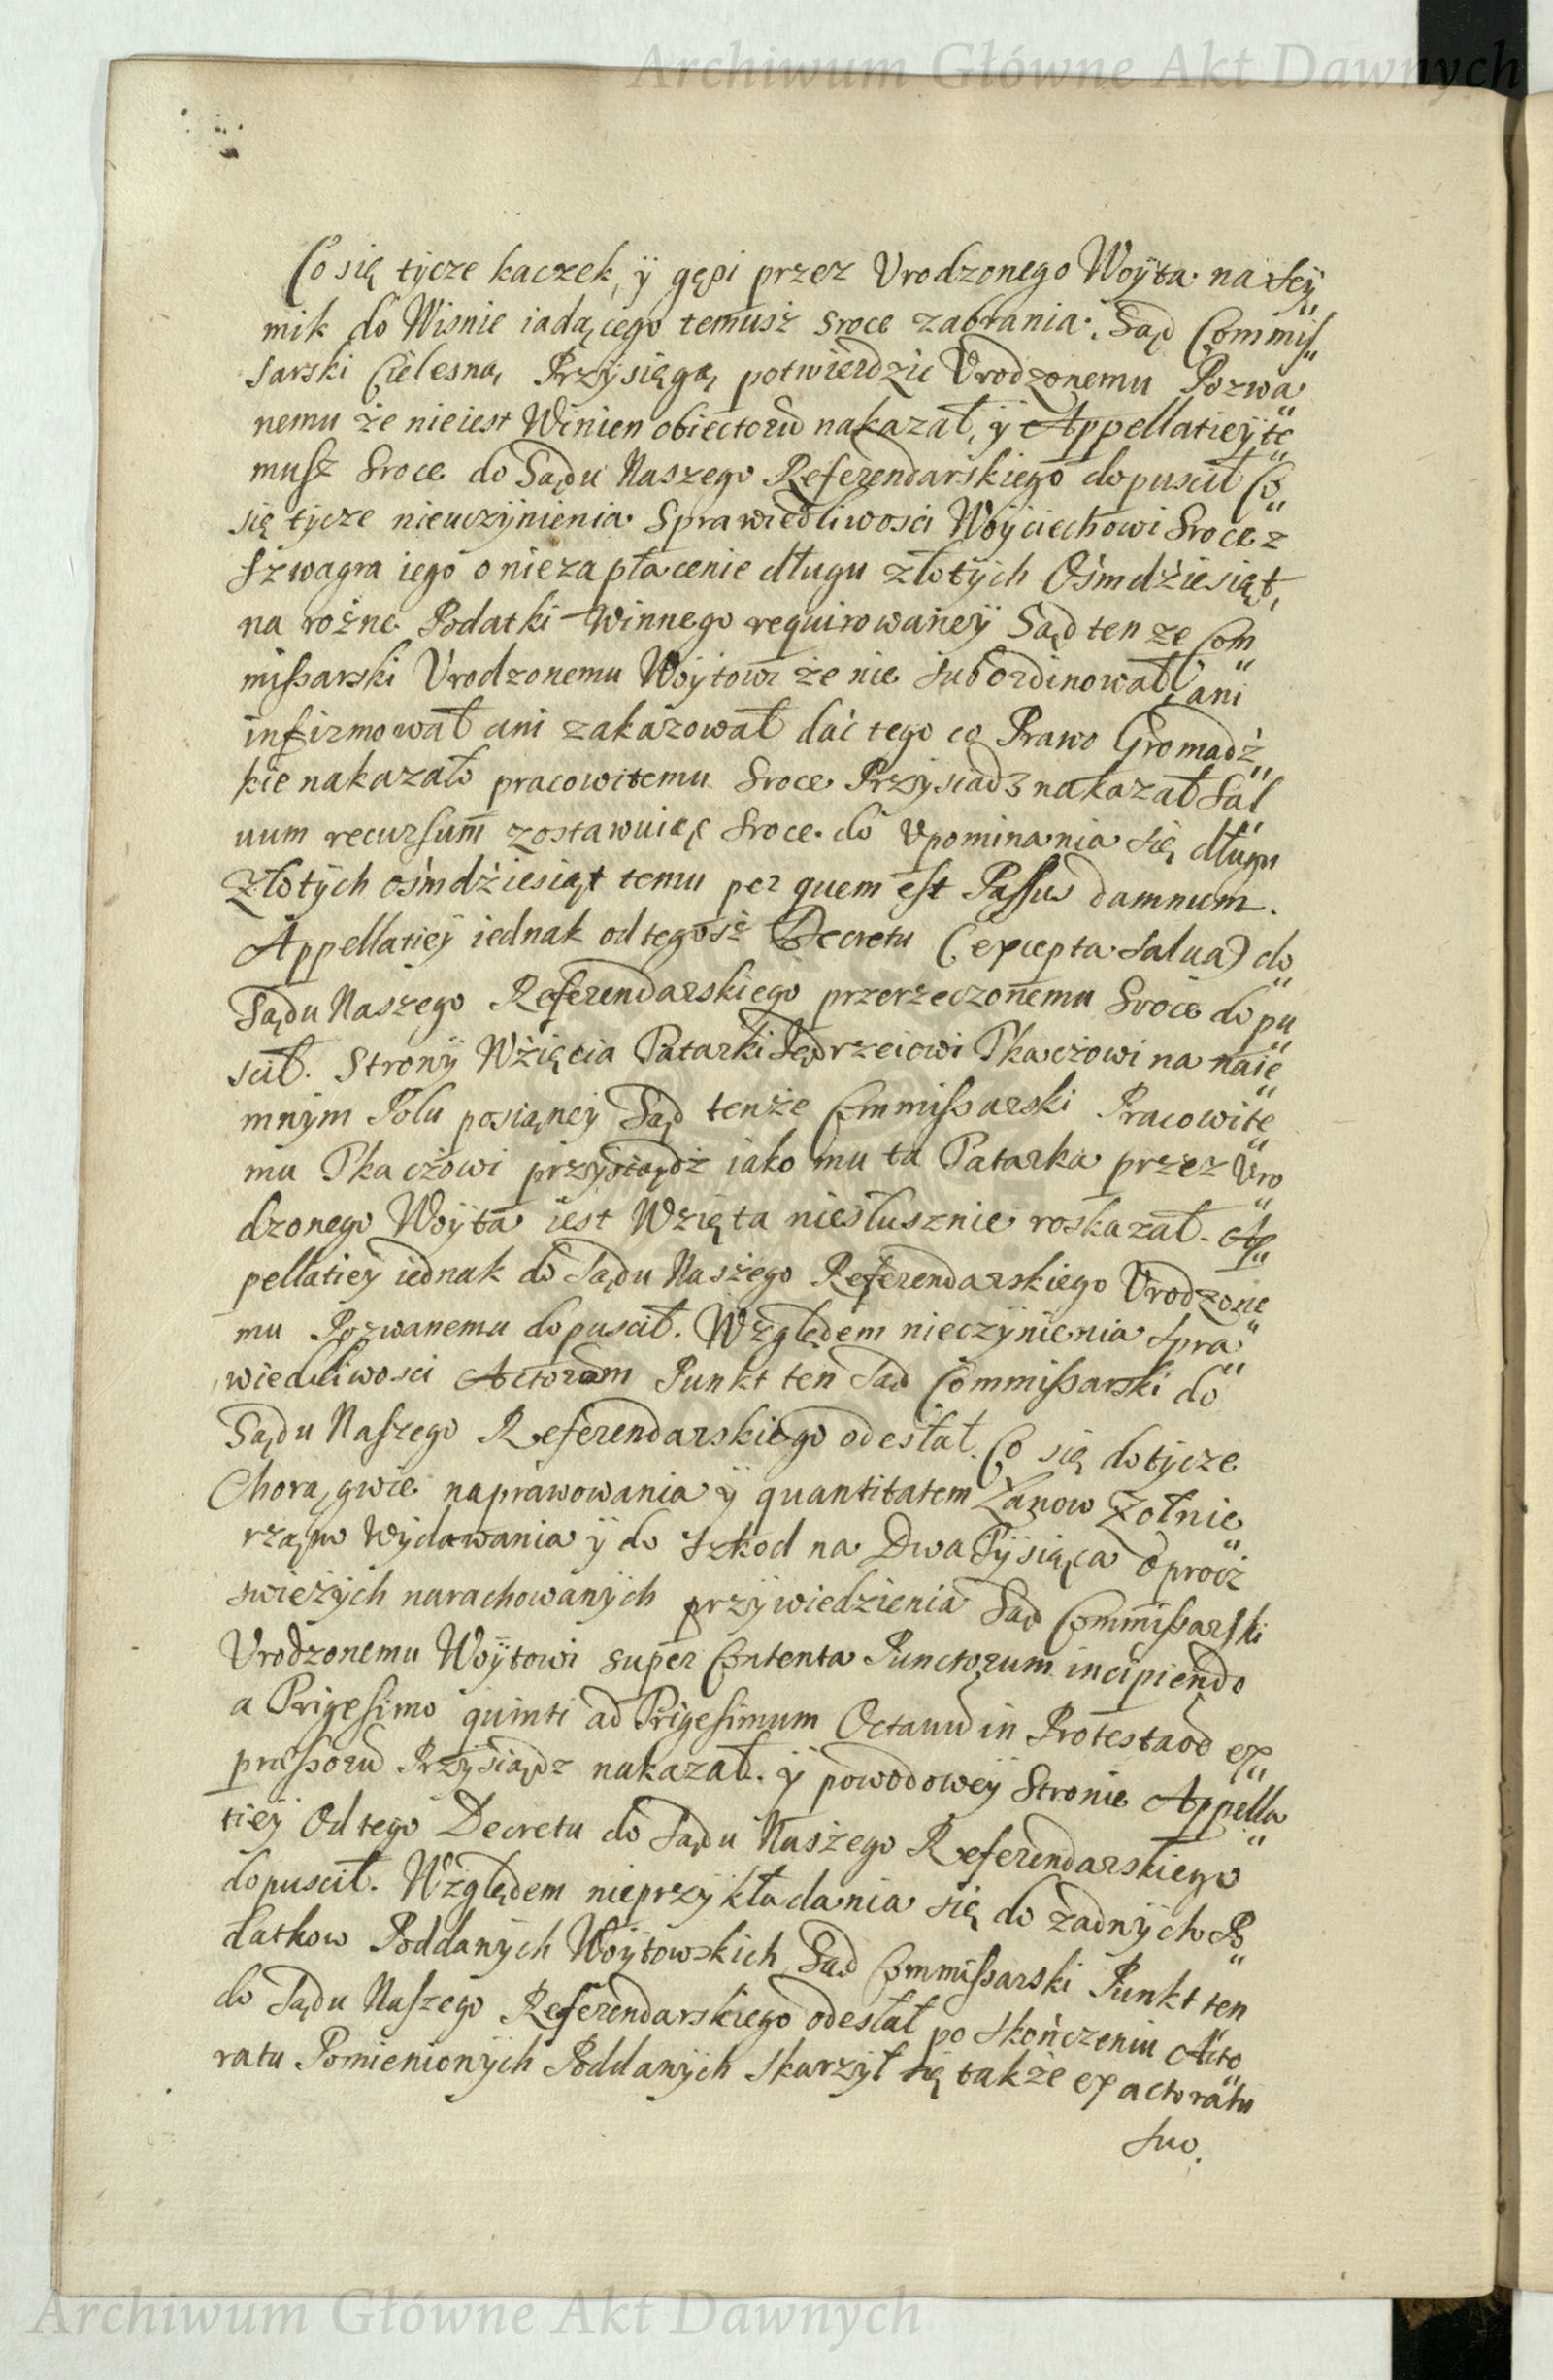 Archiwum Główne Akt Dawnych
Co się tycze kaczek, ÿ gęsi przez Vrodzonego Woÿta na Sey„
mik do Wisnie iadącego temusz Sroce zabrania. Sąd Commis„
sarski Cielesną Przysięgą potwierdzic Vrodzonemu Pozwa„
nemu że nieiest Winien obiectorū nakazał, ÿ Appellatieÿ te„
musz Sroce do Sądu Naszego Referendarskiego dopuscił Co„
się tÿcze nieuczÿnienia Sprawiedliwosci Woÿciechowi Sroce z
Szwagra iego o niezapłacenie długu złotÿch Ośmdźiesiąt,
na rożne Podatki Winnego requirowaneÿ Sąd ten ze Com„
missarski Vrodzonemu Woÿtowi że nie subordinował ani
infirmował ani zakazował dać tego co Prawo Gromadź„
kie nakazało pracowitemu Sroce Przÿsiadz nakazał Sal„
uum recursum zostawuiąc Sroce do Vpominania się długu
złotÿch ośmdźiesiąt temu per quem est Passus damnum.
Appellatieÿ iednak od tegosż Decretu (excepta salua) do„
Sądu Naszego Referendarskiego przerzeczonemu Sroce dopu„
scił. Stronÿ Wźięcia Tatarki Jędrzeiowi Tkaczowi na naie„
mnÿm Polu posianeÿ Sąd tenże Commissarski Pracowite„
mu Tkaczowi przÿsiądz iako mu ta Tatarka przez Vro„
dzonego Woÿta iest Wzięta niesłusznie roskazał. Ap„
pellatieÿ iednak do Sądu Naszego Referendarskiego Vrodzone„
mu Pozwanemu dopuscił. Względem nieczÿnienia Spra„
wiedliwosci Actorom Punkt ten Sąd Commissarski do
Sądu Naszego Referendarskiego odesłał. Co się dotÿcze
Chorągwie naprawowania ÿ quantitatem Łanow Zołnie„
rząm Wÿdawania ÿ do Szkod na Dwa Tÿsiąca oprocz
swieżÿch narachowanÿch przÿwiedzienia Sąd Commissarski
Vrodzonemu Woÿtowi super Contenta Punctorum incipiendo
a Trigesimo quinti ad Trigesimum Octauū in Protestaōē ex„
præssorū Przÿsiądz nakazał. ÿ powodoweÿ Stronie Appella„
tieÿ Od tego Decretu do Sądu Naszego Referendarskiego
dopuscił. Względem nieprzÿkładania się do żadnÿch Po„
datkow Poddanÿch Woÿtowskich Sąd Commissarski Punkt ten
do Sądu Naszego Referendarskiego odesłał po Skończeniu Acto„
ratu Pomienionÿch Poddanÿch Skarzÿł się także ex actoratu
suo.
Archiwum Główne Akt Dawnych